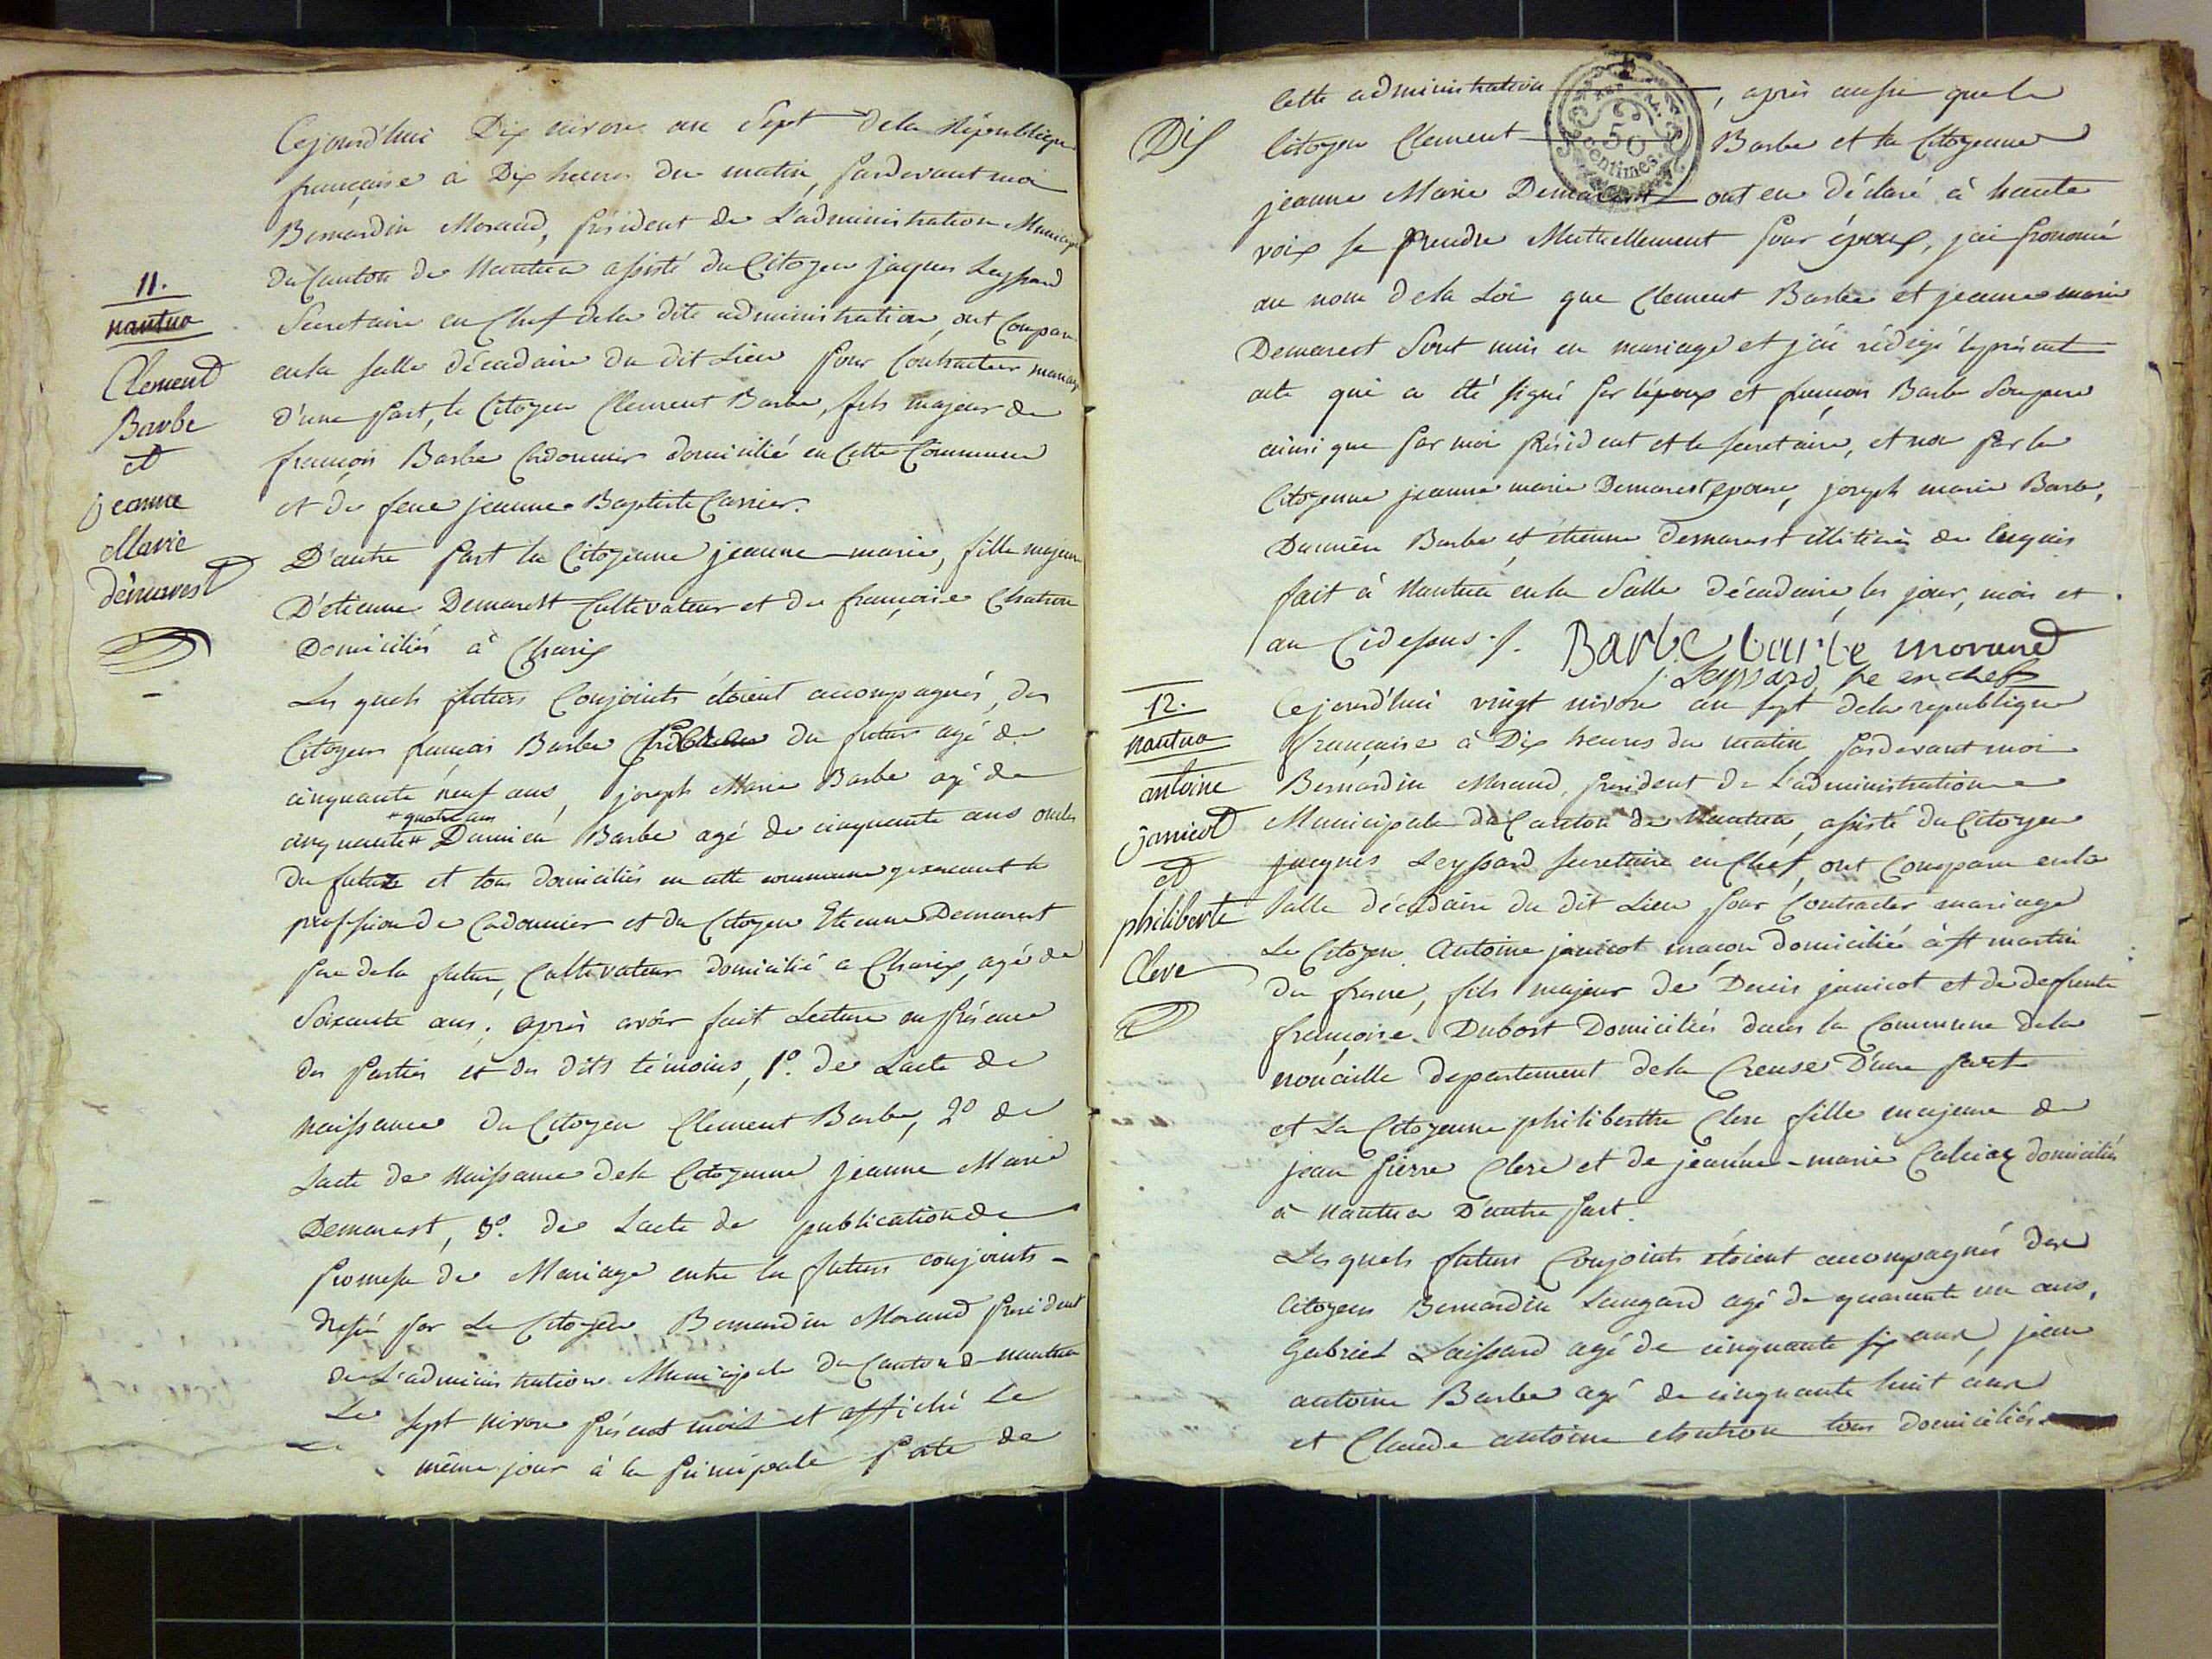 Cejourd'hui Dix nivose an Sept dela République
française à Dix heures du matin, pardevant moi
Bernardin Morand, président de L'administration Municip
du Canton de Nantua assisté du Citoyen jaques Leyssard
11.
nantua
Clement
Barbe
et
jeanne
Marie
demarest
Secretaire en Chef dela dite administration, ont Comparu
en la salle décadaire du dit Lieu pour Contracter mariage
d'une part, le Citoyen Clement Barbe, fils majeur de
françois Barbe Cordonnier domicilié en Cette Commune
et de feue jeanne Baptiste Carrier.
D'autre part la Citoyenne jeanne-marie, fille majeure
D'etienne Demarest Cultivateur et de françoise Chatron
Domiciliés à Charix
Les quels futurs Conjoints étoient accompagnés, des
Citoyens françois Barbe du futur agé de
cinquante neuf ans, joseph Marie Barbe agé de
+ quatre ans
cinquante + Damien Barbe agé de cinquante ans oncles
du futur et tous domiciliés en cette commune exercant la
profession de Cordonnier et du Citoyen Etienne Demarest
pere dela future, Cultivateur domicilié a Charix, agé de
Soixante ans; après avoir fait Lecture en présence
des parties et des dits témoins, 1º. de Lacte de
naissance du Citoyen Clément Barbe, 2º de
Lacte de Naissance dela Citoyenne jeanne Marie
Demarest, 3º. de Lacte de publication de
promesse de Mariage entre les futurs conjoints -
dressé par Le Citoyen Bernardin Morand président
de L'administration Municipale du Canton de nantua
Le sept nivose présent mois et affiché Le
même jour à la principale porte de
Cette administration, après aussi que le
Dix
Citoyen Clement Barbe et la Citoyenne
50
centimes.
jeanne Marie Demarest ont eu déclaré à haute
voix se prendre Mutuellement pour époux, j'ai prononcé
au nom dela Loi que Clement Barbe et jeanne marie
Demarest Sont unis en mariage et j'ai rédigé le présent
acte qui a été signé par l'époux et françois Barbe Son pere
ainsi que par moi Président et le secretaire, et non par la
Citoyenne jeanne marie Demarest epouse, joseph marie Barbe,
Damien Barbe et étienne demarest illitérés de ce requis
fait à Nantua en la Salle décadaire, les jour, mois et
an Cidessus ./. Barbe barbe morand
Leyssard, sre en chef
12.
nantua
antoine
janicot
et
philiberte
Clere
Cejourd'hui vingt nivose an sept dela republique
française à Dix heures du matin pardevant moi
Bernardin Morand, president de L'administration
Municipale du Canton de Nantua, assisté du Citoyen
jacques Leyssard secretaire en Chef, ont Comparu en la
salle décadaire du dit Lieu pour Contracter mariage
Le Citoyen Antoine janicot maçon domicilié à st martin
du fresne, fils majeur de Denis janicot et de deffunte
françoise Dubost Domiciliés dans la Commune dela
nouaille departement dela Creuse D'une part
et La Citoyenne philiberthe Clere fille majeure de
jean pierre Clere et de jeanne-marie domiciliés
à Nantua D'autre part.
Les quels futurs Conjoints étoient accompagnés des
Citoyens Bernardin agé de quarante un ans,
Gabriel Laissard agé de cinquante six ans, jean
antoine Barbe agé de cinquante huit ans
et Claude antoine chatron tous domiciliés